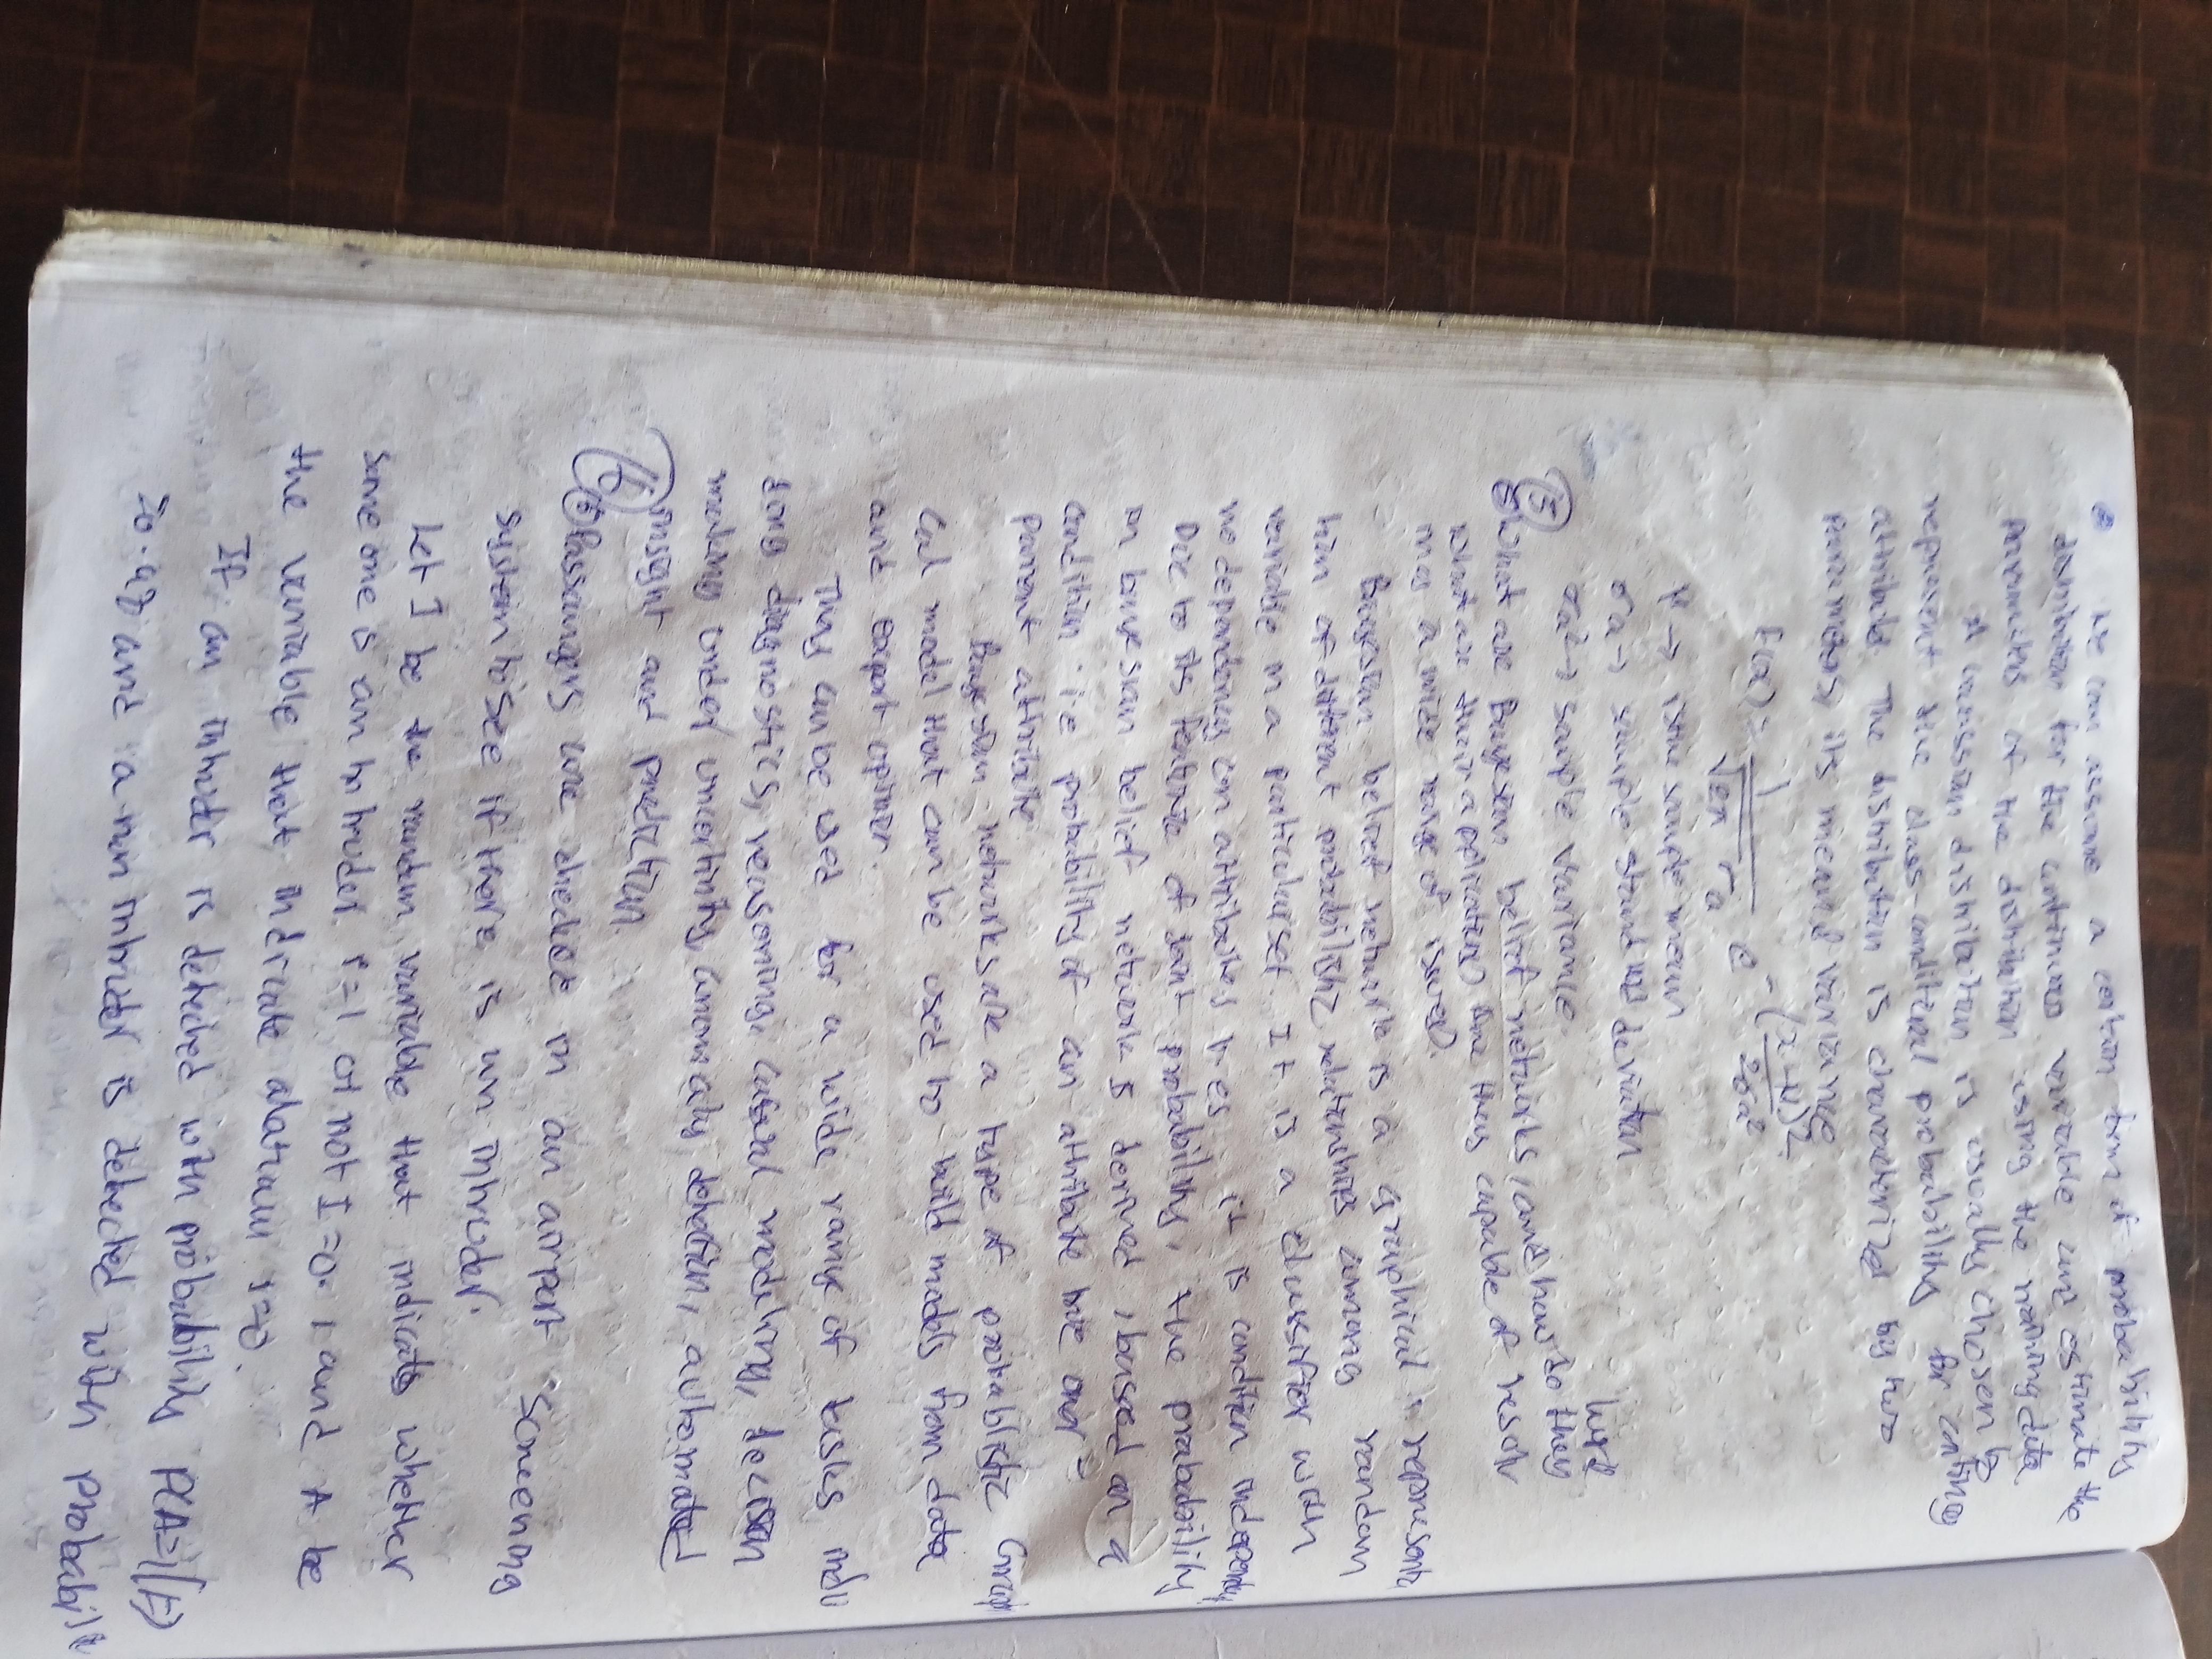 ② We can assume a certain form of probability
distribution for the continuous variable and estimate the
parameters of the distribution using the training data
A Gaussian distribution is usually chosen to
represent the class-conditional probability for
attribute. The distribution is characterized by two
parameters, its mean & variance
f(x) = 1 / √2π σa e -(x-μ)2 / 2σa²
μ → is the sample mean
σa → sample standard deviation
σa² → sample variance.
work
⑤ What are Bayesian belief networks, and how do they
what are their applications? Are they capable of resolv
ing a wide range of issues?
Bayesian belief network is a graphical representa
tion of different probabilistic relationships among random
variable in a particular set. It is a classifier with
no dependency on attributes i.e. it is condition independ
Due to its feature of joint probability, the probability
in bayesian belief network is derived, based on a
condition i.e probability of an attribute
parent attribute
Bayesian networks are a type of probablistic Graph
cal model that can be used to build models from data
and expert opinion.
They can be used for a wide range of tasks inclu
ding diagnostics, reasoning, causal modeling, decision
making under uncertinity, anomaly detection, automated
insight and prediction.
⑥ Passangers are checked in an airport Screening
system to see if there is an intruder.
Let I be the random variable that indicates whether
some one is an intruder I=1 or not I=0, and A be
the variable that indicate alarm
If an intruder is detected with probability P(A=1|I)
=0.98 and a non intruder is detected with probabili